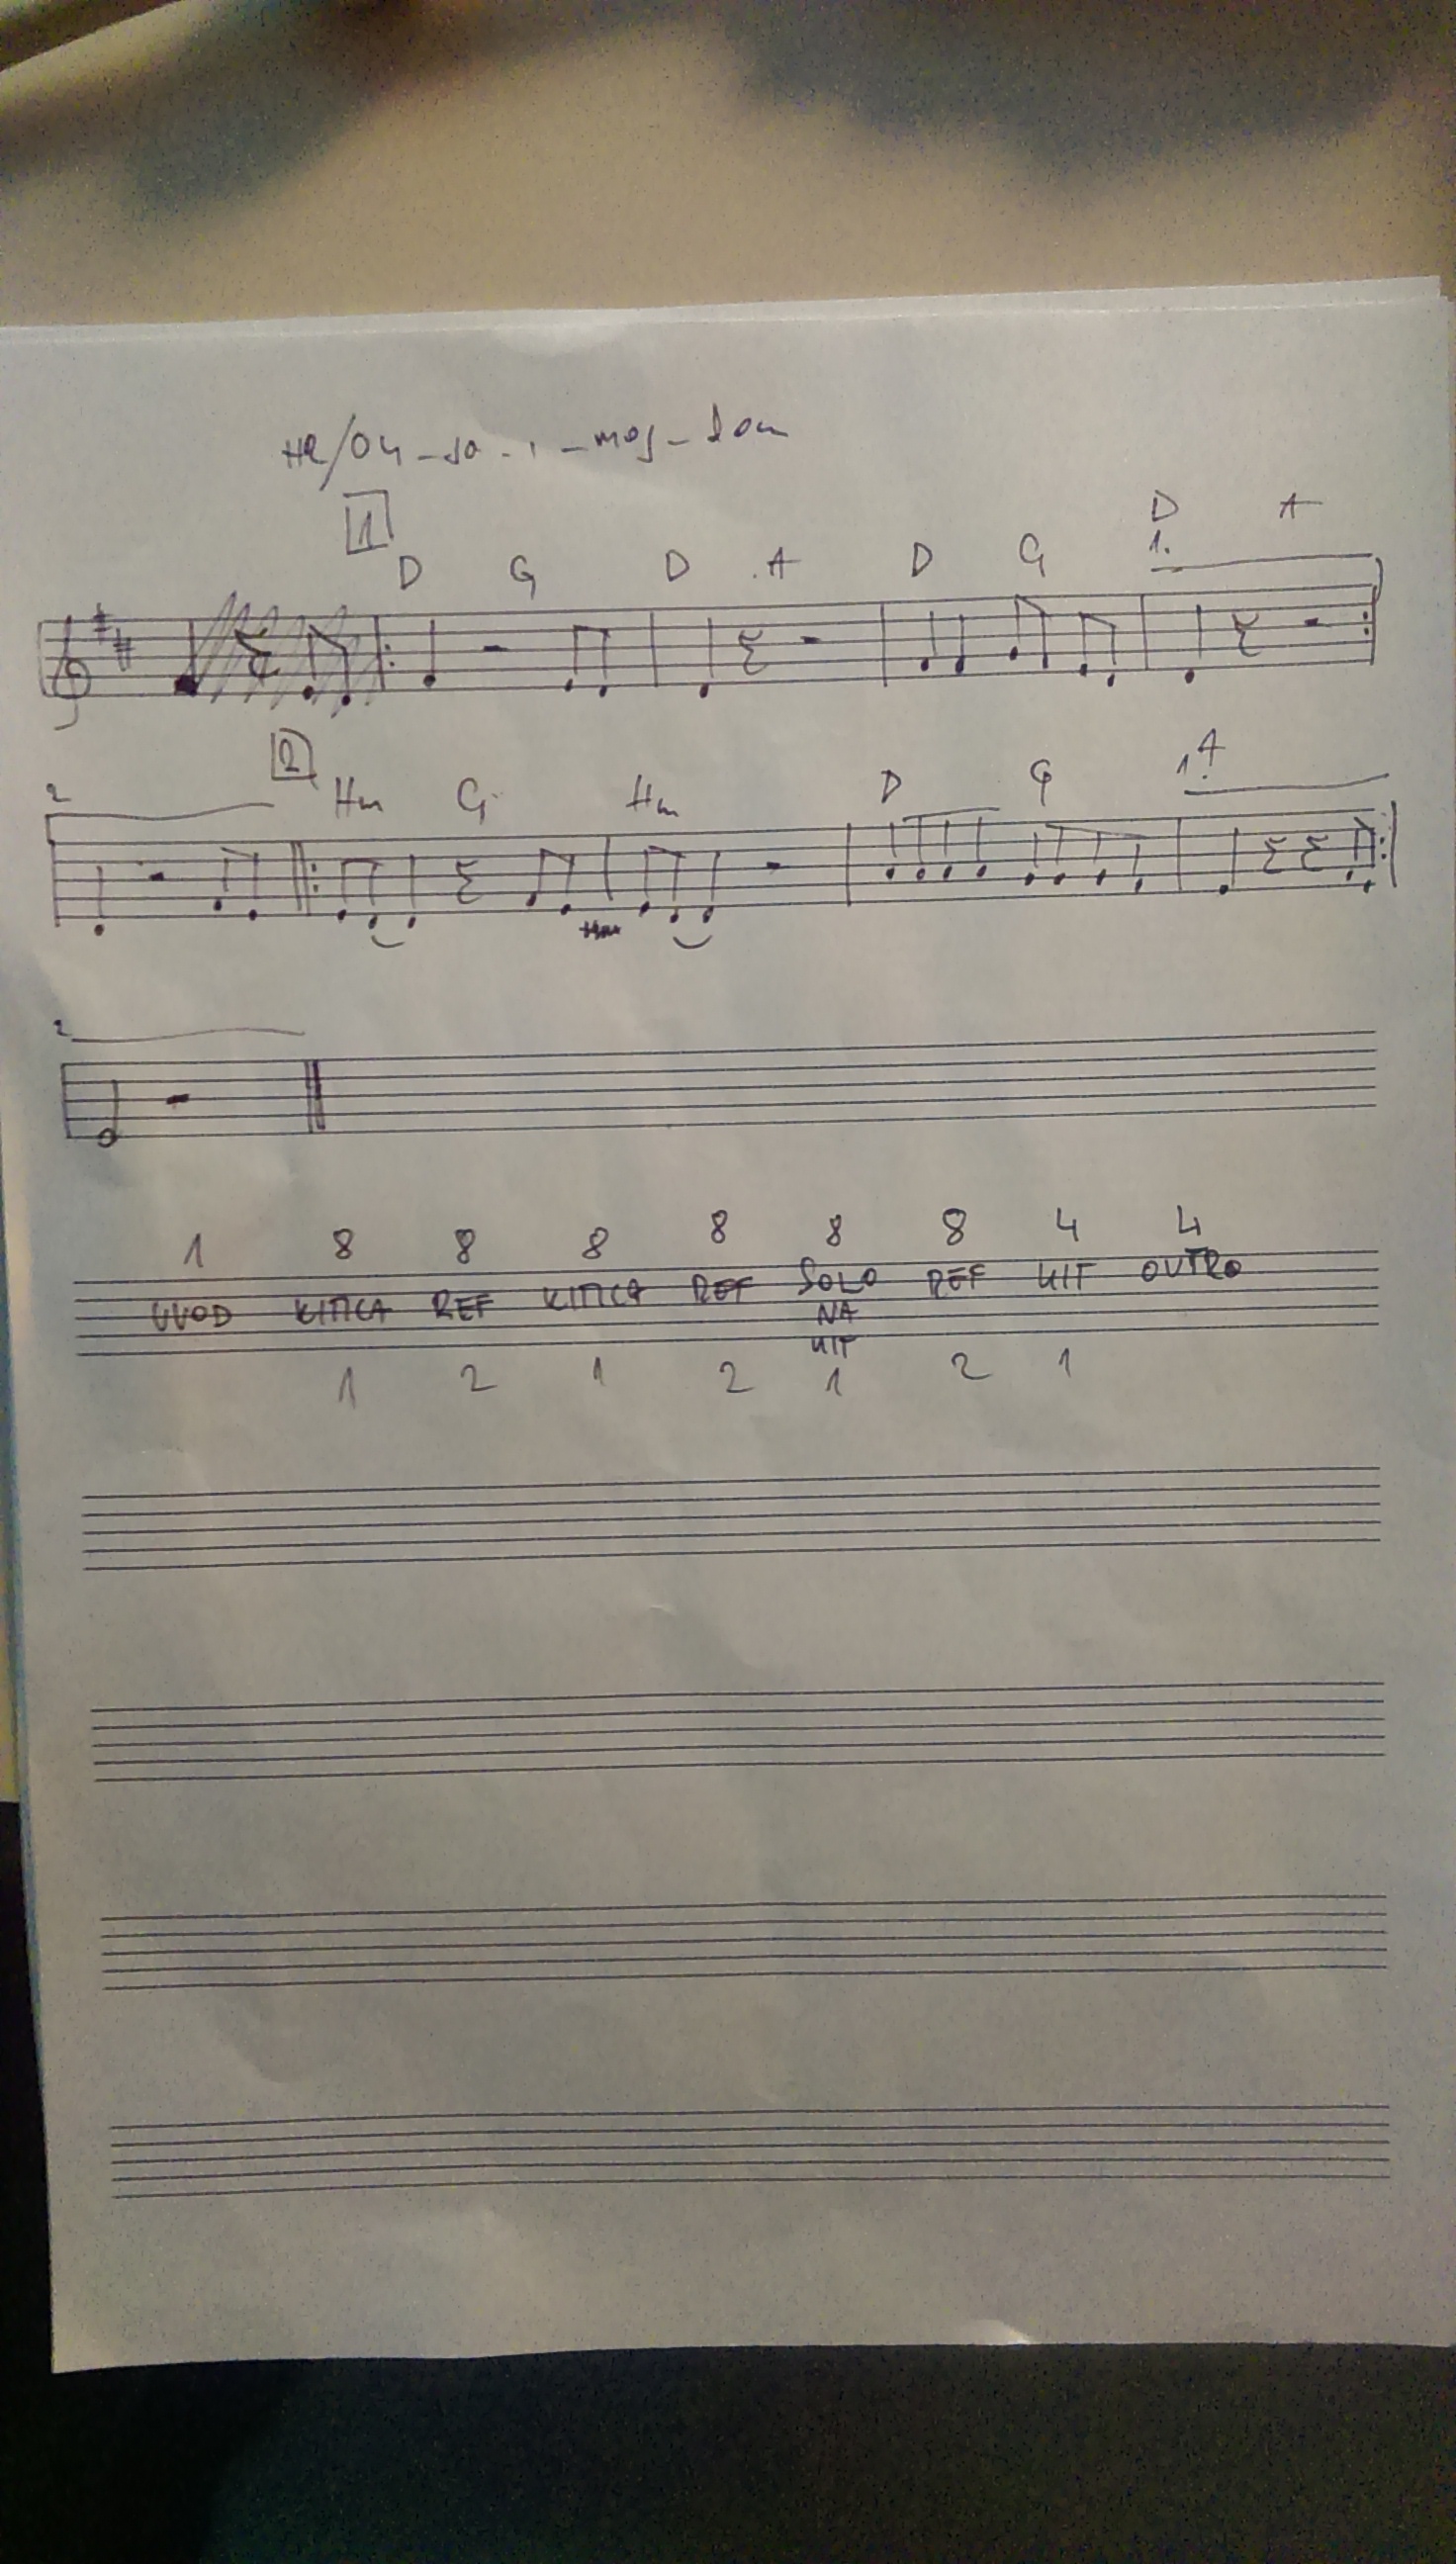 HR/04_so_i_moj_dom
1
D G D A D G D A
1.
2 Hm G Hm D G A
2 1.
2
1 8 8 8 8 8 8 4 4
UVOD KITICA REF KITICA REF SOLO REF KIT OUTRO
NA
KIT
1 2 1 2 1 2 1